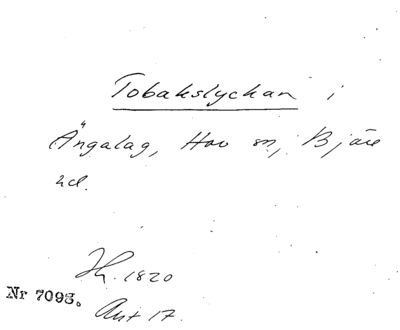 Tobakslyckan i
Ängalag, Hov sn, Bjäre
hd.
Jh. 1820
Nr 7093.
Ant 17.